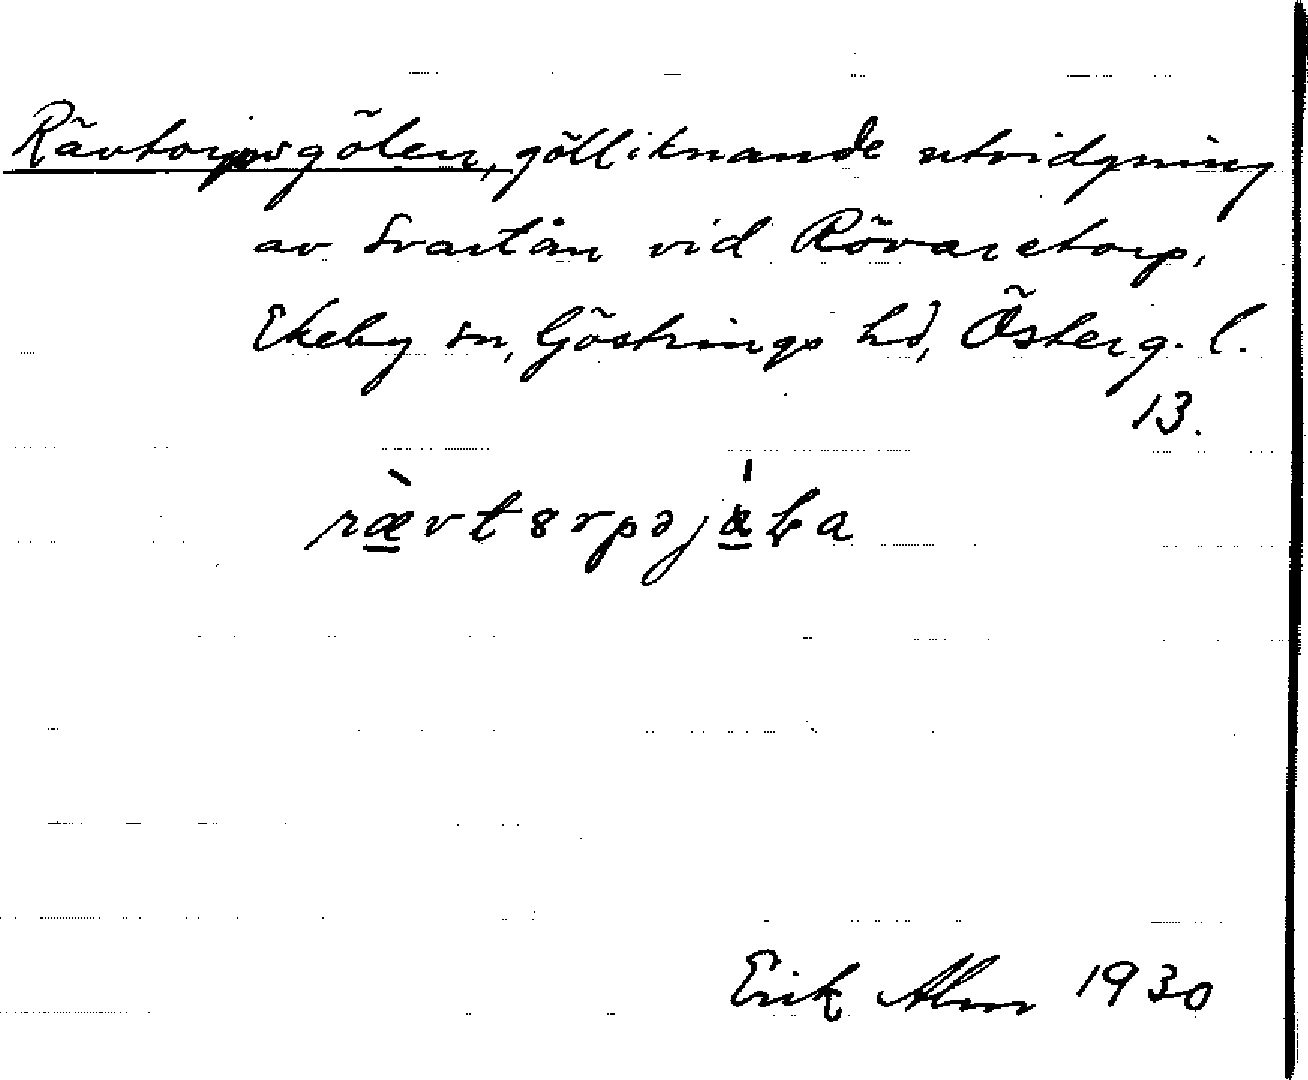 Rävtorpsgölen, gölliknande utvidgning
av Svartån vid Rövaretorp,
Ekeby sn, Göstrings hd, Österg. l.
13.
Erik Alm 1930